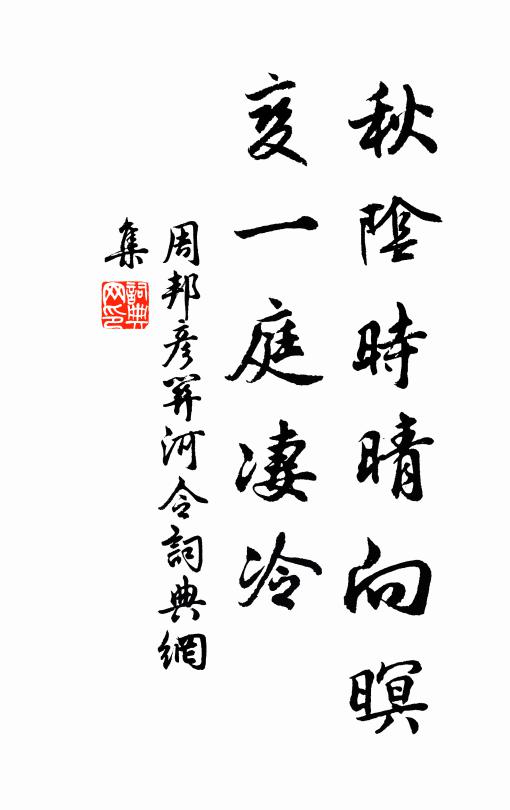 秋陰時晴向暝
变一庭凄冷
周邦彥關河令詞典網
集
詞典
网印